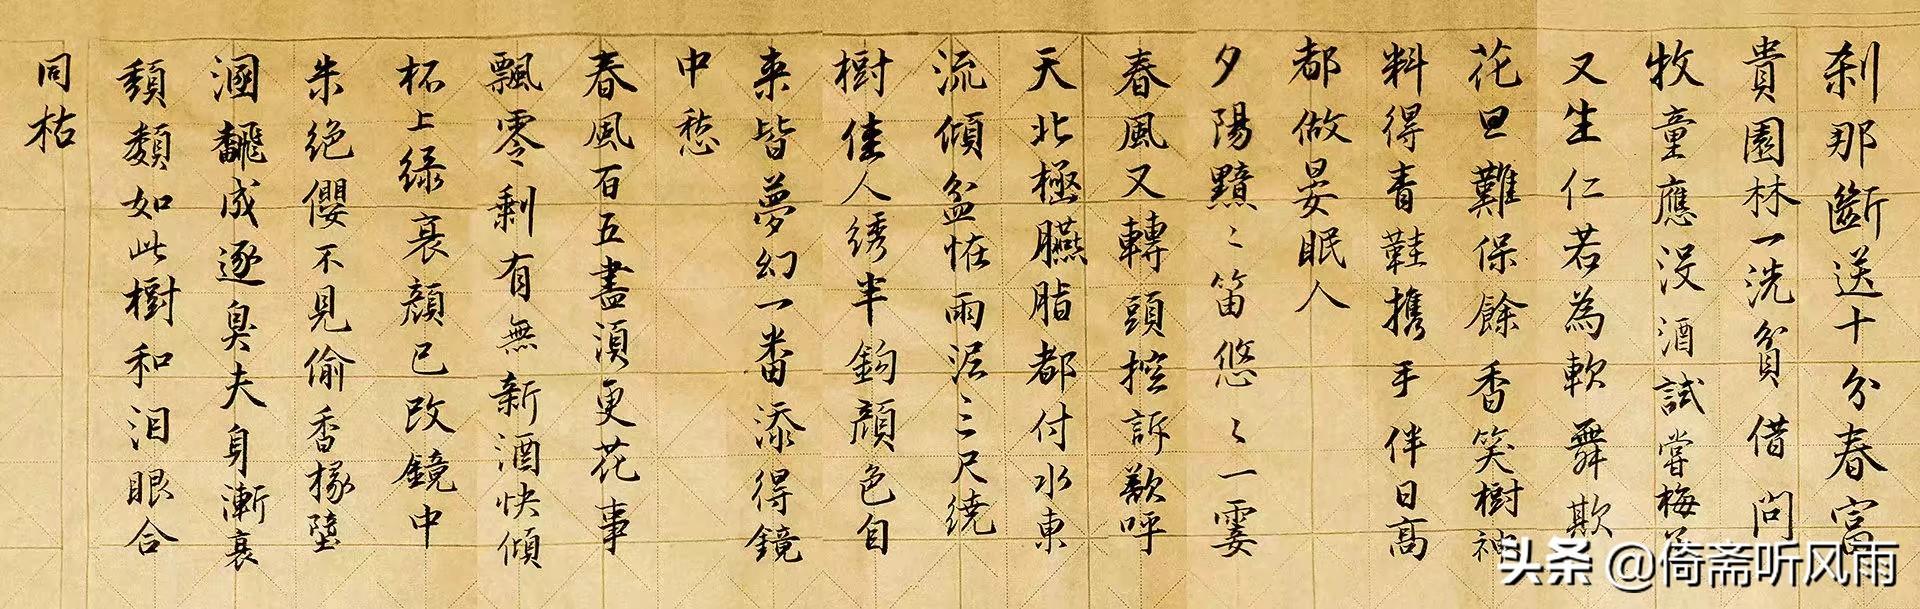 刹那斷送十分春富
貴園林一洗貧借問
牧童應没酒試嘗梅
又生仁若為軟舞欺
花旦難保餘香笑樹神
料得青鞋携手伴日高
都做晏眠人
夕陽黯〻笛悠〻一霎
春風又轉頭控訴欲呼
天北極臙脂都付水東
流傾盆怪雨泥三尺繞
樹佳人綉半鈎顔色自
来皆夢幻一番添得鏡
中愁
春風百五盡須更花事
飄零剩有無新酒快傾
杯上緑衰顔已改鏡中
朱絶纓不見偷香椽墮
溷飜成逐臭夫身漸衰
頽類如此樹和泪眼合
同枯
头条 @倚斋听风雨